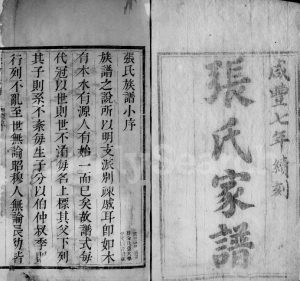 咸豐七年續刻
張氏家譜
張氏族譜小序
族譜之說所以明支派別疎戚耳即如木
有本水有源人有始一而已矣故譜式每
代冠以世則世不淆每名上標其父下列
其子則系不紊每生子分以伯仲叔季則
行列不亂至世無論昭穆人無論長幼者